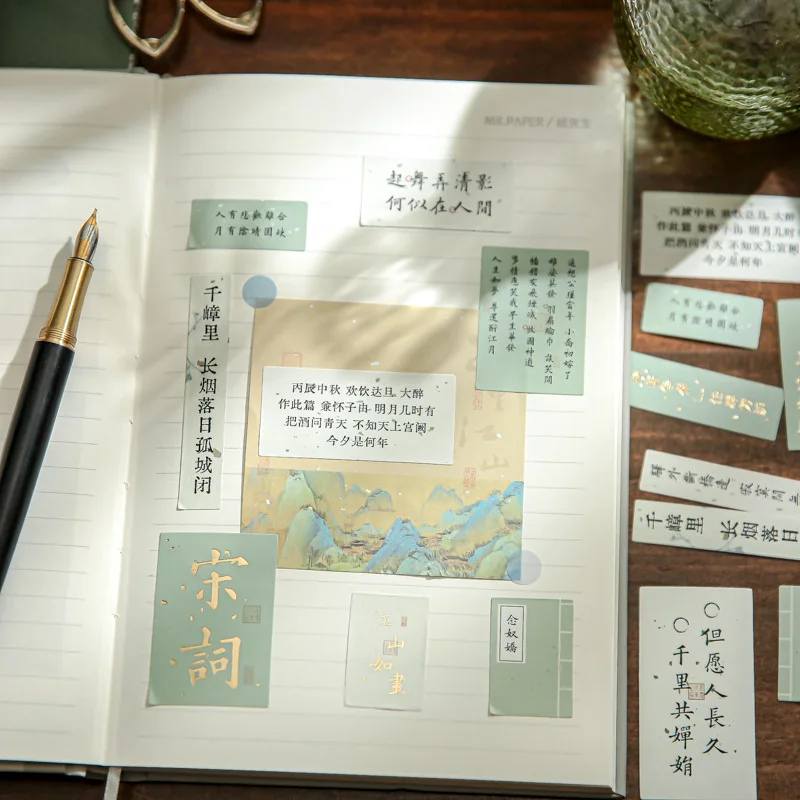 MR.PAPER / 纸先生
起舞弄清影
何似在人間
人有悲歡離合
月有陰晴圓缺
遥想公瑾當年 小喬初嫁了
雄姿英發 羽扇綸巾 談笑間
檣櫓灰飛煙滅 故國神遊
多情應笑我早生華發
人生如夢 一尊還酹江月
千嶂里 长烟落日孤城闭
丙辰中秋 欢饮达旦 大醉
作此篇 兼怀子由 明月几时有
把酒问青天 不知天上宫阙
今夕是何年
宋詞
江山
如畫
念奴嬌
丙辰中秋 欢饮达旦 大醉
作此篇 兼怀子由 明月几时
把酒问青天 不知天上宫阙
今夕是何年
人有悲歡離合
月有陰晴圓缺
驛外斷橋邊 寂寞開無
千嶂里 长烟落日
但愿人長久
千里共嬋娟